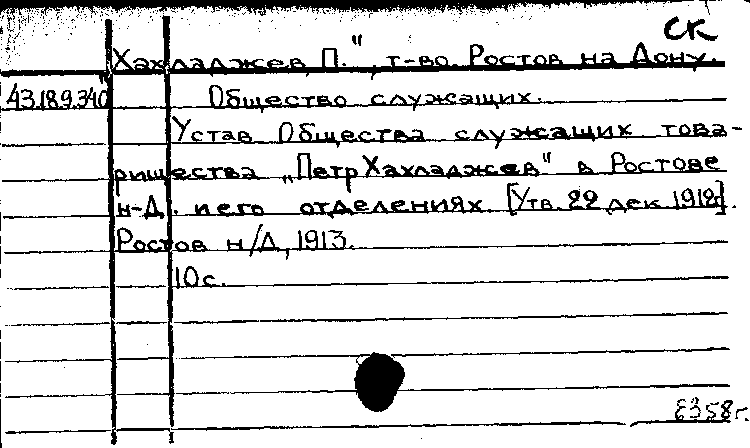 СК
Хахладжев, П.", т-во. Ростов на Дону.
43.18.9.340 Общество служащих.
Устав Общества служащих това-
рищества „Петр Хахладжев" в Ростове
н-Д. и его отделениях. [Утв. 22 дек. 1912г.].
Ростов н/Д, 1913.
10 с.